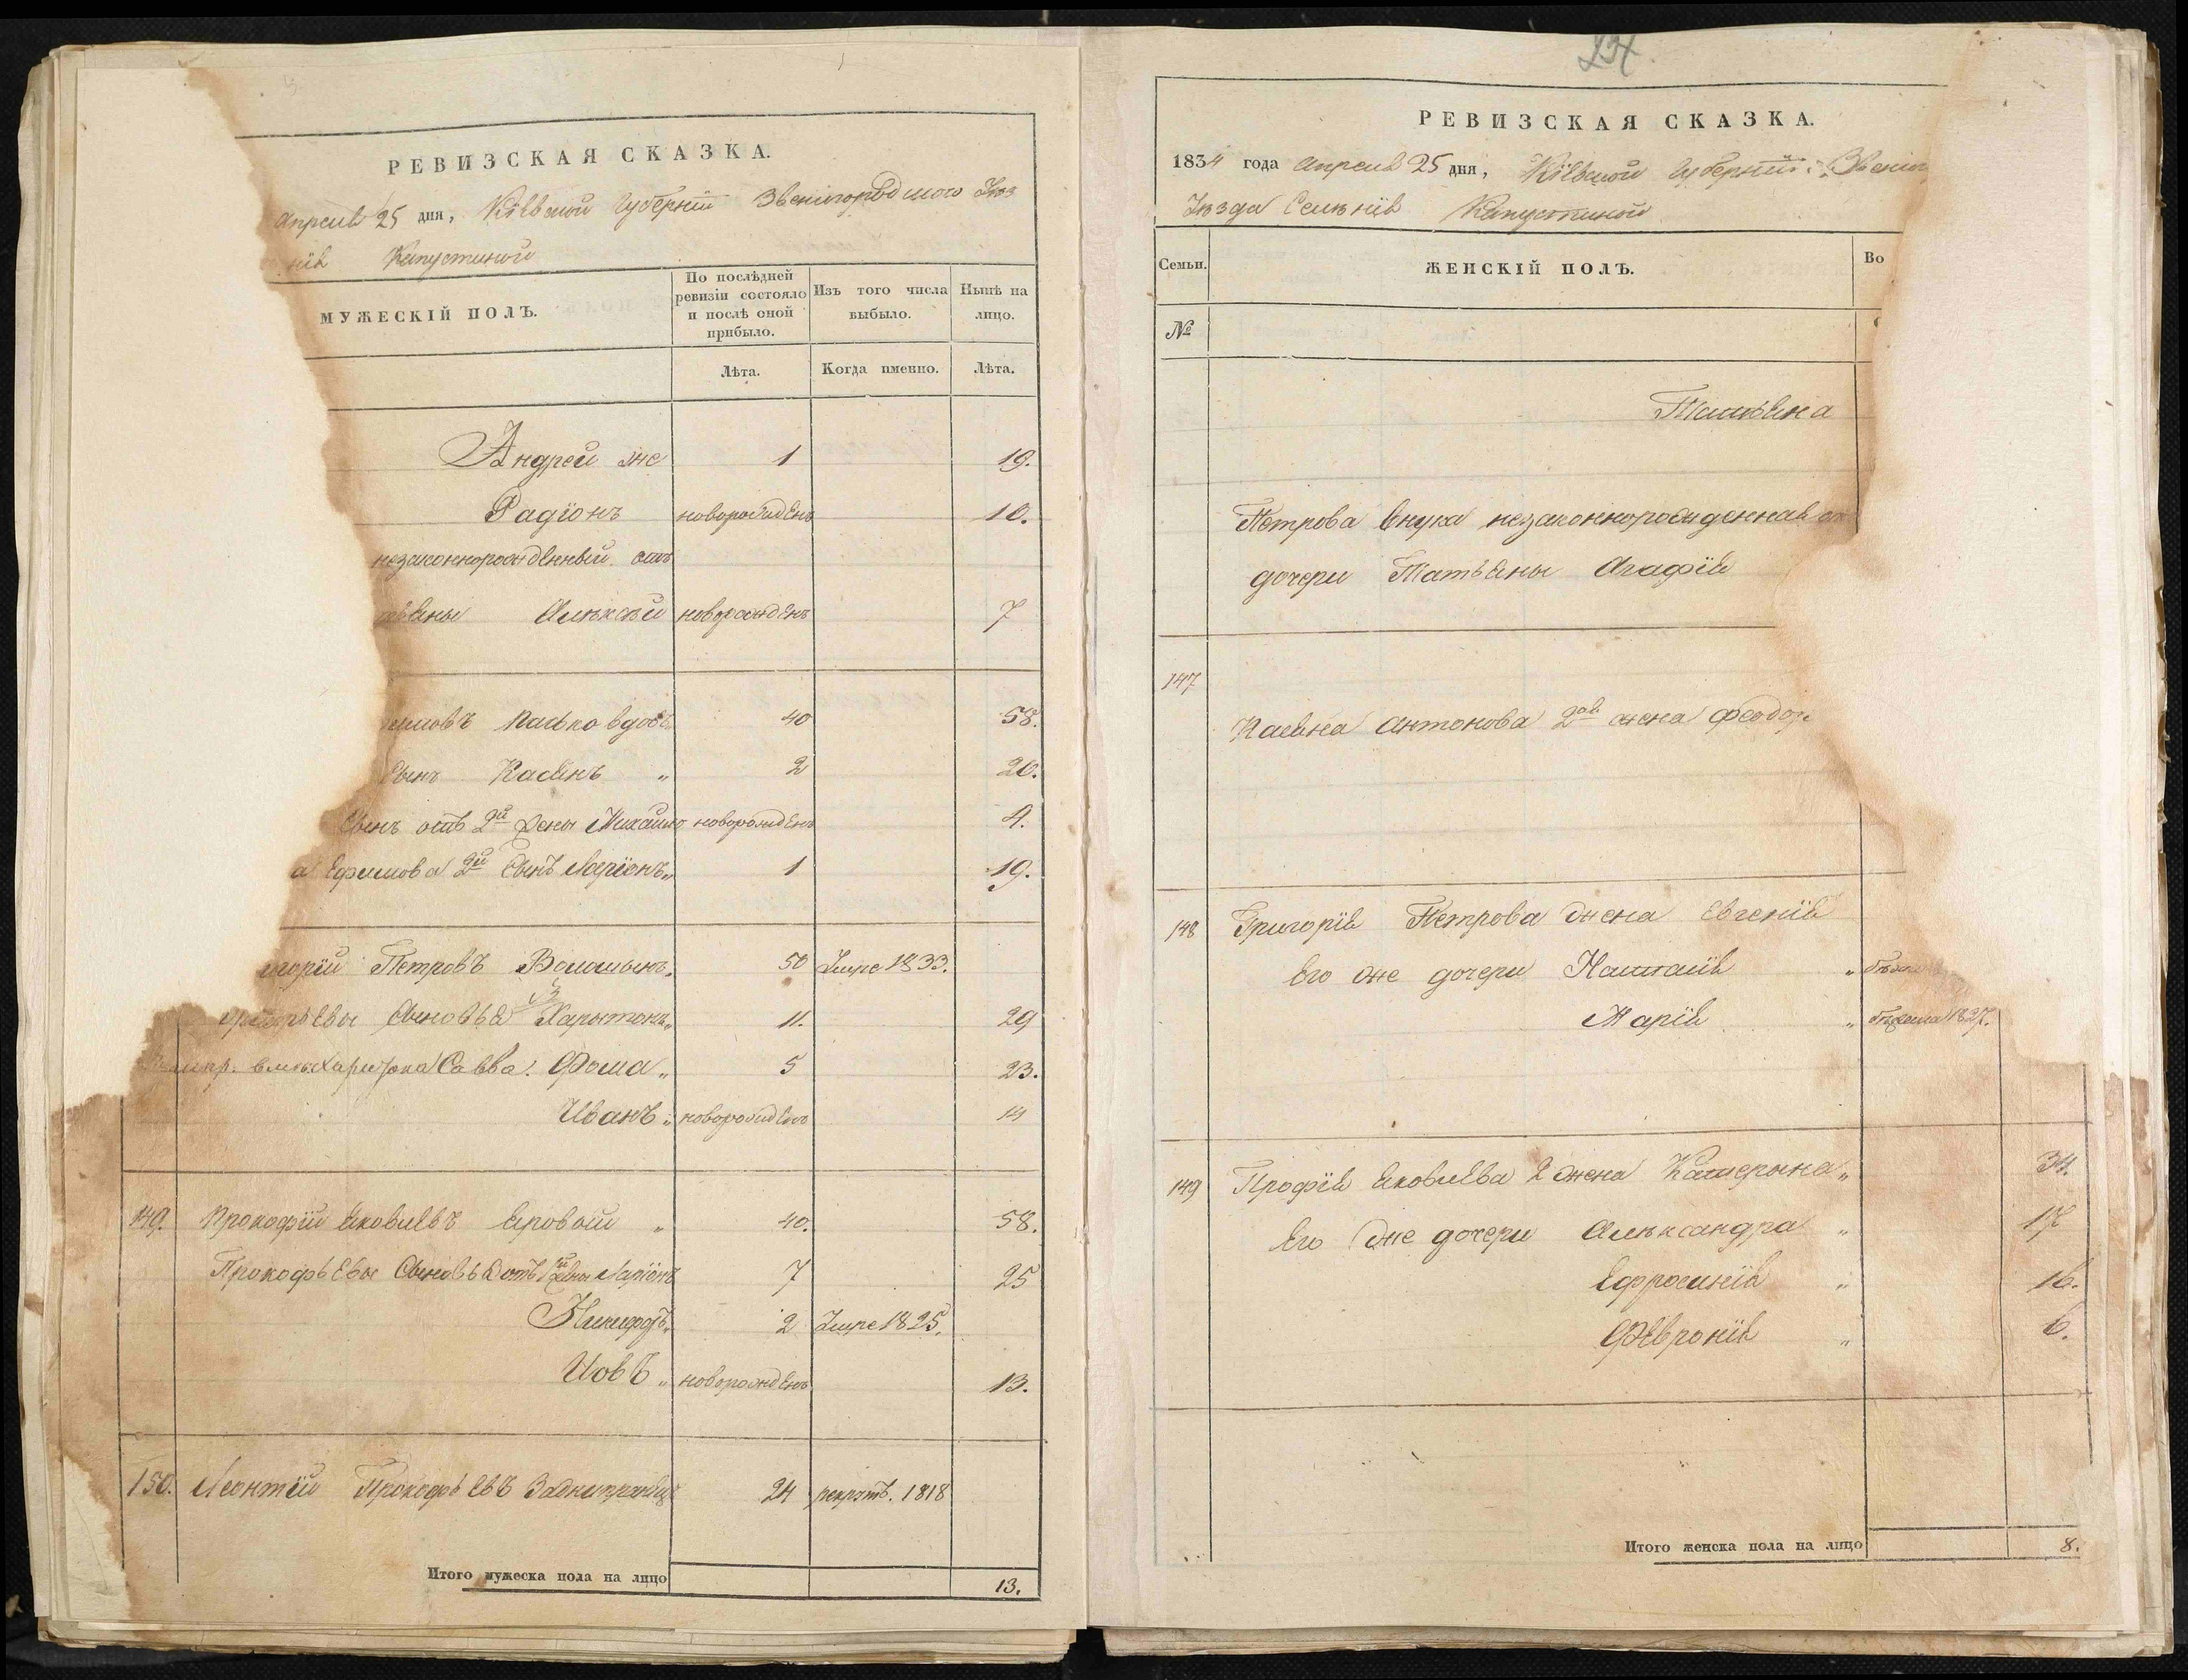 РЕВИЗСКАЯ СКАЗКА.
апреля 25 дня, Кіевской Губерніи Звенигородского Уѣз
нія Капустиной
МУЖЕСКІЙ ПОЛЪ.
По послѣдней ревизіи состояло и послѣ оной прибыло.
Изъ того числа выбыло.
Нынѣ на лицо.
Лѣта.
Когда именно.
Лѣта.
Андрей же 1 19.
Радіонъ новорожденъ 10.
незаконнорожденный отъ
тьяны Алексѣй новорожденъ 7
40 58.
Сынъ Касянъ " 2 20.
Сынъ отъ 2й жены Михайло новорожденъ 4.
а Ефимова 2й Сынъ Ларіонъ " 1 19.
игорій Петровъ Волошынъ " 50 Умре 1833.
Сыновья Харытонъ " 11. 29
Савва. Фома " 5 23.
Иванъ " новорожденъ 14
149. Прокофій Яковлевъ Яровой " 40. 58.
Прокофьевы Сыновья отъ 1й жены Ларіонъ 7 25
Никифоръ " 2 Умре 1825.
Иовъ " новорожденъ 13.
150. Леонтій Прокофьевъ 24 рекрутъ. 1818
Итого мужеска пола на лицо 13.
РЕВИЗСКАЯ СКАЗКА.
1834 года апреля 25 дня, Кіевской Губерніи Звениг
Уѣзда Селенія Капустиной
Семьи.
ЖЕНСКІЙ ПОЛЪ.
Во
№
Татьяна
Петрова внука незаконнорожденная от
дочери Татьяны Агафія
147
Касяна Антонова 2ая жена Феодо
148 Григорія Петрова жена Евгенія
Его же дочери Наталія "
Марія " 1827.
149 Яковлева 2 жена Катерына " 34.
Его же дочери Александра " 17
Ефросинія " 16.
Февронія " 6.
Итого женска пола на лицо 8.